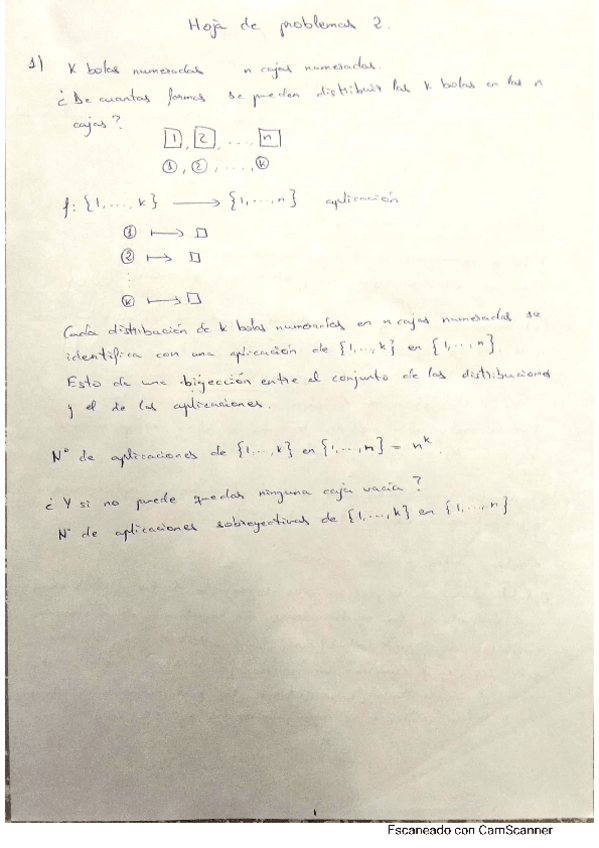 Hoja de problemas 2.
1) K bolas numeradas n cajas numeradas.
¿De cuantas formas se pueden distribuir las k bolas en las n
cajas?
1, 2, ..., n
1, 2, ..., k
f: {1,...,k} → {1,...,n} aplicación
1 ↦ □
2 ↦ □
⋮
k ↦ □
Cada distribución de k bolas numeradas en n cajas numeradas se
identifica con una aplicación de {1,...,k} en {1,...,n}.
Esto da una biyección entre el conjunto de las distribuciones
y el de las aplicaciones.
Nº de aplicaciones de {1,...,k} en {1,...,n} = n^k.
¿Y si no puede quedar ninguna caja vacía?
Nº de aplicaciones sobreyectivas de {1,...,k} en {1,...,n}
1
Escaneado con CamScanner